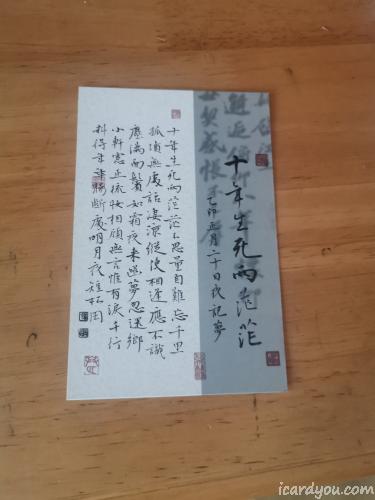 十年生死兩茫茫
乙卯正月二十日夜記夢
十年生死兩茫茫不思量自難忘千里
孤墳無處話淒涼縱使相逢應不識
塵滿面鬢如霜夜來幽夢忽還鄉
小軒窗正梳妝相顧無言惟有淚千行
料得年年腸斷處明月夜短松岡
icardyou.com